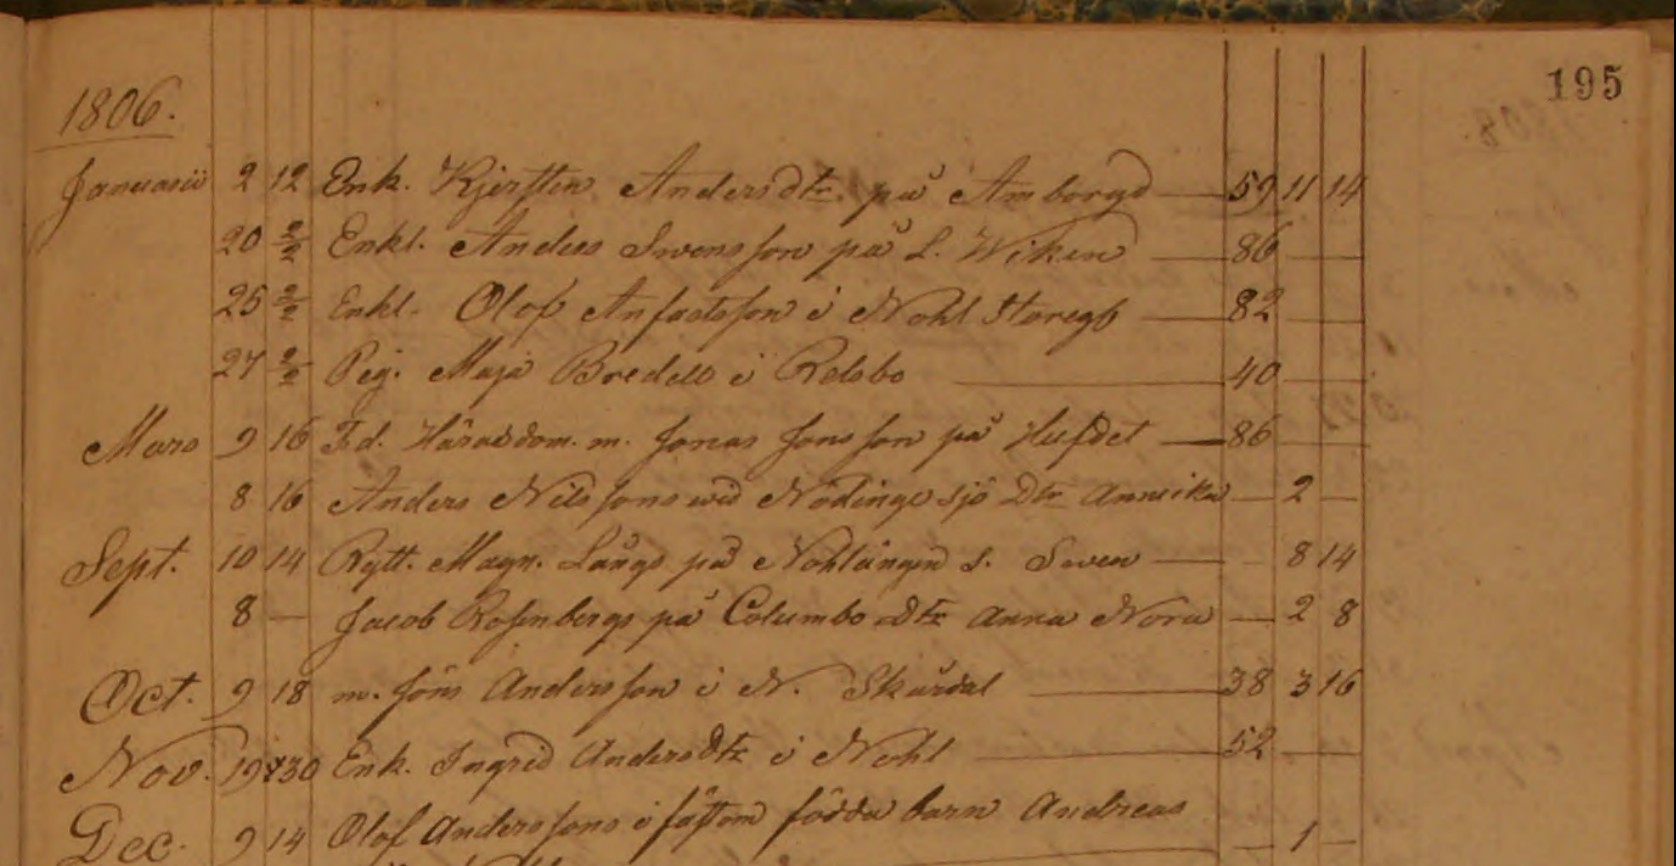 195
1806.
Januarii 2 12 Enk. Kjerstin Andersdtr. på Amborgd 59 11 14
20 2/2 Enkl. Anders Swensson på L. Wiken 86
25 2/2 Enkl. Olof Anfastsson i Nohl Storegb 82
27 2/2 Pig. Maja Bredell i Relsbo 40
Mars 9 16 Fd. Häradsdom. m. Jonas Jonsson på Hufdet 86
8 16 Anders Nilssons wid Nödinge sjö Dtr Annika 2
Sept. 10 14 Rytt. Magn. Långs på s. Swen 8 14
8 Jacob Rosenbergs på Columbo Dtr Anna Nora 2 8
Oct. 9 18 m. Jöns Andersson i N. Skårdal 38 3 16
Nov. 19 30 Enk. Ingrid Andersdtr i Nohl 52
Dec. 9 14 Olof Anderssons i födda barn Andreas 1